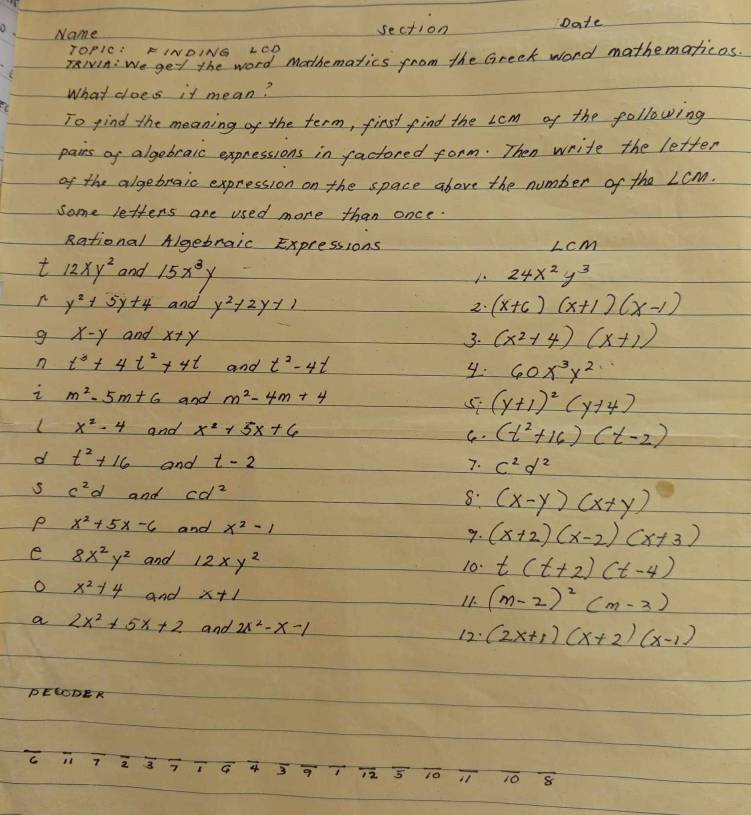 Name Section Date
TOPIC: FINDING LCD
TRIVIA: We get the word Mathematics from the Greek word mathematicos.
What does it mean?
To find the meaning of the term, first find the LCM of the following
pairs of algebraic expressions in factored form. Then write the letter
of the algebraic expression on the space above the number of the LCM.
Some letters are used more than once.
Rational Algebraic Expressions LCM
t 12xy² and 15x³y 1. 24x²y³
r y²+5y+4 and y²+2y+1 2. (x+6) (x+1) (x-1)
g x-y and x+y 3. (x²+4) (x+1)
n t³+4t²+4t and t²-4t 4. 60x³y²
i m²-5m+6 and m²-4m+4 5. (y+1)² (y+4)
l x²-4 and x²+5x+6 6. (t²+16) (t-2)
d t²+16 and t-2 7. c²d²
s c²d and cd² 8. (x-y) (x+y)
p x²+5x-6 and x²-1 9. (x+2) (x-2) (x+3)
e 8x²y² and 12xy² 10. t (t+2) (t-4)
o x²+4 and x+1 11. (m-2)² (m-3)
a 2x²+5x+2 and 2x²-x-1 12. (2x+1) (x+2) (x-1)
DECODER
6 11 7 2 3 7 1 6 4 3 9 1 12 5 10 11 10 8